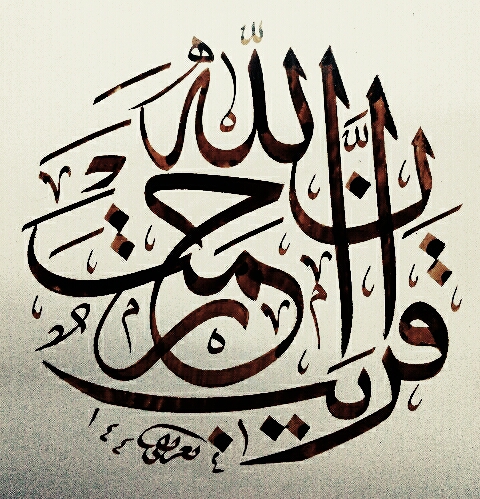 إِنَّ رَحْمَتَ اللَّهِ قَرِيبٌ